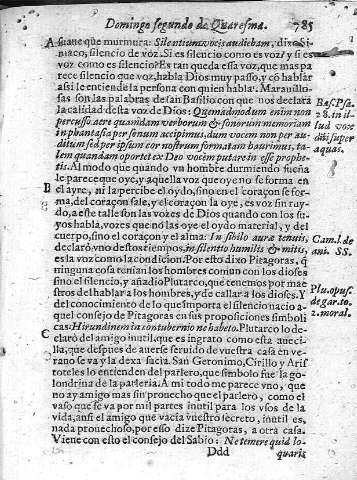 Domingo segundo de Quaresma. 785
A suaue que murmura: Silentium & vocis audiebam, dixo Si-
maco, silencio de voz. Si es silencio como es voz? y si es
voz como es silencio? Es tan queda essa voz, que mas pa
rece silencio que voz, habla Dios muy passo, y cõ hablar
assi le entiende la persona con quien habla. Marauillo-
sas son las palabras de san Basilio con que nos declara
la calidad de la voz de Dios: Quemadmodum enim non
percusso aere quandam verborum & sonorum memoriam
in phantasia per sonum accipimus, dum vocem non per au-
ditum sed per ipsum cor nostrum formatam haurimus, ta-
lem quandam oportet ex Deo vocem putare in esse prophe-
tis. Al modo que quando vn hombre durmiendo sueña
le parece que oye, y aquella voz que oye no se forma en
B el ayre, ni la percibe el oydo, sino en el coraçon se for-
ma, del coraçon sale, y el coraçon la oye, es voz sin ruy-
do, a este talle son las vozes de Dios quando con los su-
yos habla, vozes que no las oye el oydo material, y del
cuerpo, sino el coraçon y el alma: In sibilo auræ tenuis,
declarò vno destos tiempos, in silentio humilis & mitis,
es la voz como la condicion. Por esto dixo Pitagoras, q̃
ninguna cosa tenian los hombres comun con los dioses
sino el silencio, y añadio Plutarco, que tenemos por mae
stros del hablar a los hombres, y de callar a los dioses. Y
del conocimiento de lo que importa el silencio nacio a-
quel consejo de Pitagoras en sus proposiciones simboli
cas: Hirundinem in contubernio ne habeto. Plutarco lo de-
C clarò del amigo inutil, que es ingrato como esta aueci-
lla, que despues de auerse seruido de vuestra casa en ve-
rano se va y la dexa sucia. San Geronimo, Cirillo y Aris
toteles lo entienden del parlero, que simbolo fue la go-
londrina de la parleria. A mi todo me parece vno, que
no ay amigo mas sin prouecho que el parlero, como el
vaso que se va por mil partes inutil para los vsos de la
vida, ansi el amigo que vacia vuestro secreto, inutil es,
nada prouechoso, por esso dize Pitagoras, a otra casa.
Viene con esto el consejo del Sabio: Ne temere quid lo-
Ddd quaris
Bas. Psa.
28. in il-
lud vox
dñi super
aquas.
Cam. l. de
ani. SS.
Plu. opus.
de gar. to.
2. moral.